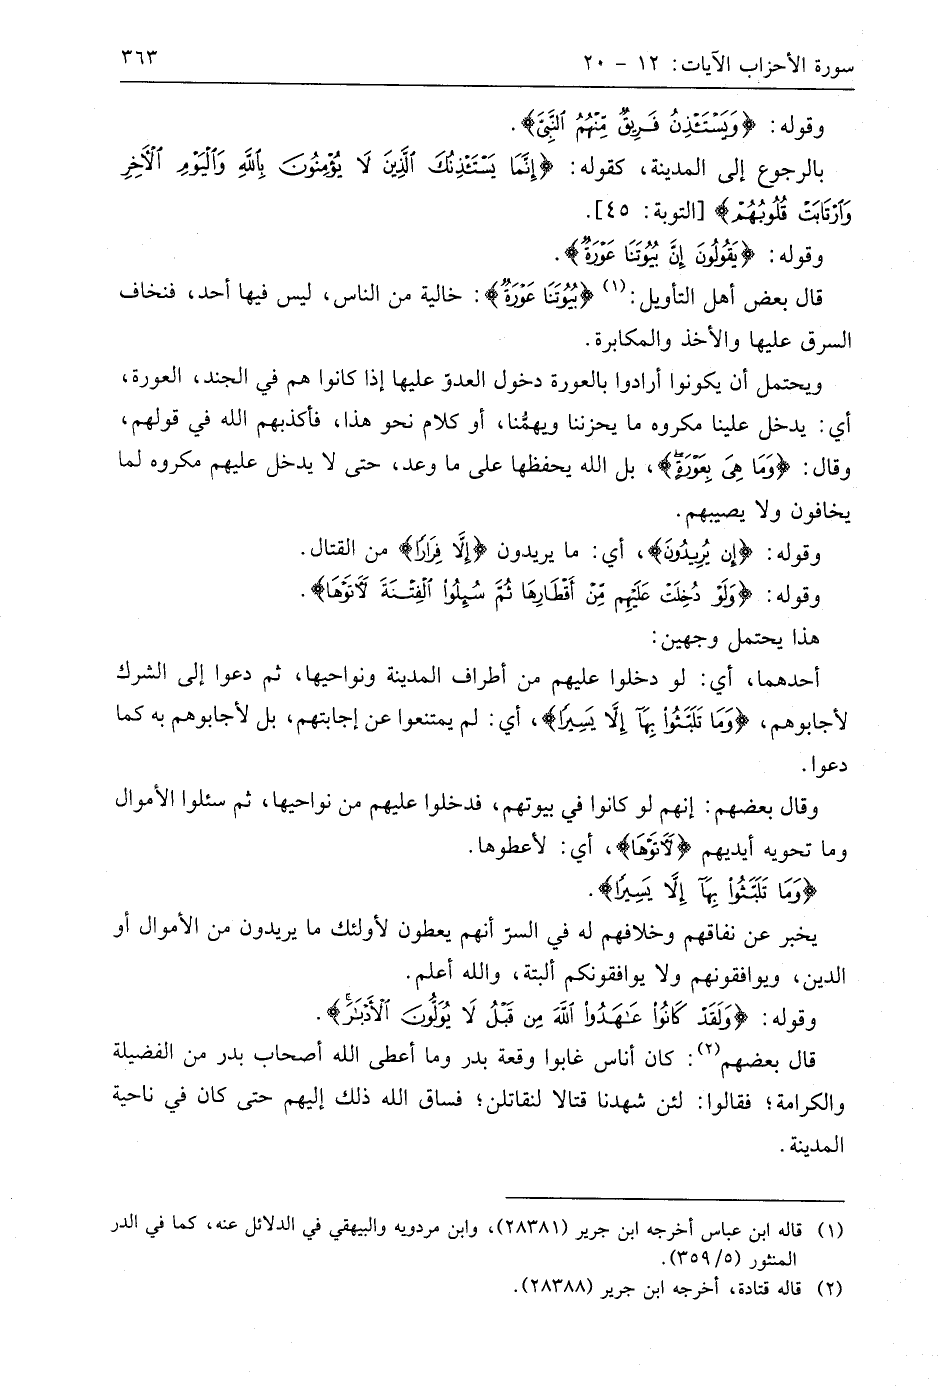 سورة الأحزاب الآيات: ١٢ - ٢٠ ٣٦٣
وقوله: ﴿وَيَسْتَـْٔذِنُ فَرِيقٌ مِّنْهُمُ النَّبِىَّ﴾.
بالرجوع إلى المدينة، كقوله: ﴿إِنَّمَا يَسْتَـْٔذِنُكَ الَّذِينَ لَا يُؤْمِنُونَ بِاللَّهِ وَالْيَوْمِ الْآخِرِ
وَارْتَابَتْ قُلُوبُهُمْ﴾ [التوبة: ٤٥].
وقوله: ﴿يَقُولُونَ إِنَّ بُيُوتَنَا عَوْرَةٌ﴾.
قال بعض أهل التأويل:(١) ﴿بُيُوتَنَا عَوْرَةٌ﴾: خالية من الناس، ليس فيها أحد، فنخاف
السرق عليها والأخذ والمكابرة.
ويحتمل أن يكونوا أرادوا بالعورة دخول العدوّ عليها إذا كانوا هم في الجند، العورة،
أي: يدخل علينا مكروه ما يحزننا ويهمُّنا، أو كلام نحو هذا، فأكذبهم الله في قولهم،
وقال: ﴿وَمَا هِىَ بِعَوْرَةٍ﴾، بل الله يحفظها على ما وعد، حتى لا يدخل عليهم مكروه لما
يخافون ولا يصيبهم.
وقوله: ﴿إِن يُرِيدُونَ﴾، أي: ما يريدون ﴿إِلَّا فِرَارًا﴾ من القتال.
وقوله: ﴿وَلَوْ دُخِلَتْ عَلَيْهِم مِّنْ أَقْطَارِهَا ثُمَّ سُئِلُوا الْفِتْنَةَ لَآتَوْهَا﴾.
هذا يحتمل وجهين:
أحدهما، أي: لو دخلوا عليهم من أطراف المدينة ونواحيها، ثم دعوا إلى الشرك
لأجابوهم، ﴿وَمَا تَلَبَّثُوا بِهَآ إِلَّا يَسِيرًا﴾، أي: لم يمتنعوا عن إجابتهم، بل لأجابوهم به كما
دعوا.
وقال بعضهم: إنهم لو كانوا في بيوتهم، فدخلوا عليهم من نواحيها، ثم سئلوا الأموال
وما تحويه أيديهم ﴿لَآتَوْهَا﴾، أي: لأعطوها.
﴿وَمَا تَلَبَّثُوا بِهَآ إِلَّا يَسِيرًا﴾.
يخبر عن نفاقهم وخلافهم له في السرّ أنهم يعطون لأولئك ما يريدون من الأموال أو
الدين، ويوافقونهم ولا يوافقونكم ألبتة، والله أعلم.
وقوله: ﴿وَلَقَدْ كَانُوا عَـٰهَدُوا اللَّهَ مِن قَبْلُ لَا يُوَلُّونَ الْأَدْبَـٰرَ﴾.
قال بعضهم(٢): كان أناس غابوا وقعة بدر وما أعطى الله أصحاب بدر من الفضيلة
والكرامة؛ فقالوا: لئن شهدنا قتالا لنقاتلن؛ فساق الله ذلك إليهم حتى كان في ناحية
المدينة.
(١) قاله ابن عباس أخرجه ابن جرير (٢٨٣٨١)، وابن مردويه والبيهقي في الدلائل عنه، كما في الدر
المنثور (٣٥٩/٥).
(٢) قاله قتادة، أخرجه ابن جرير (٢٨٣٨٨).